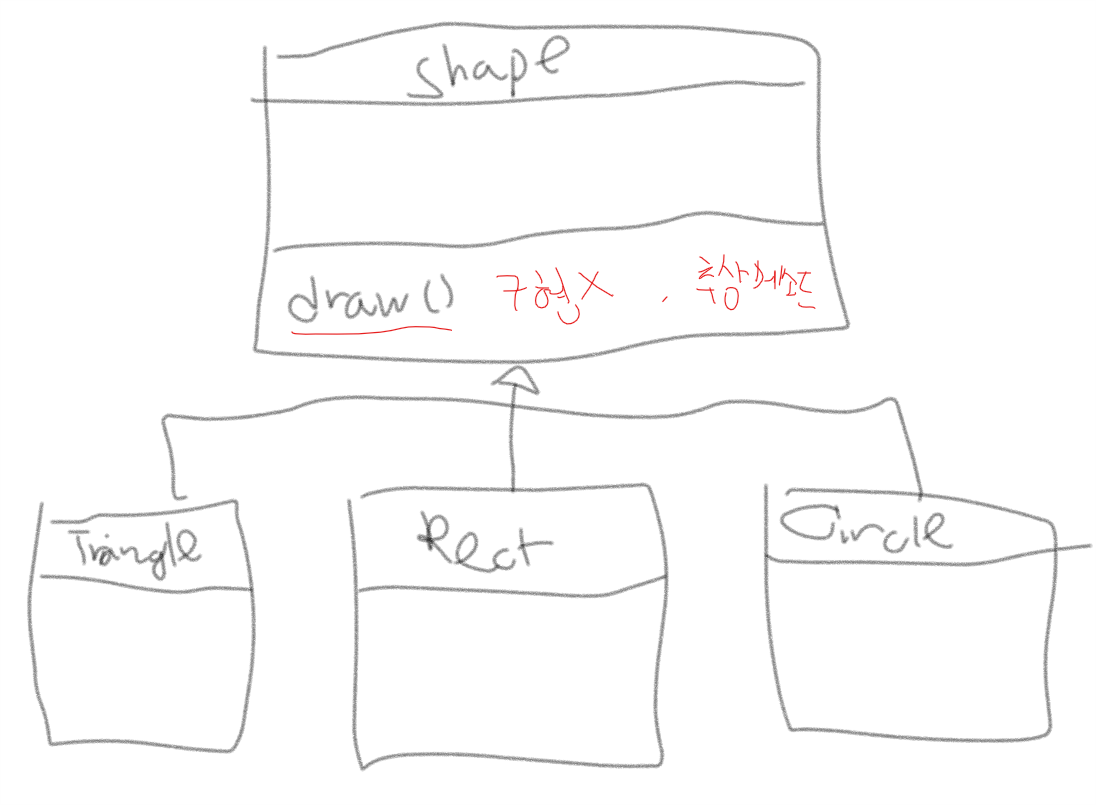 shape
draw() 구현X . 추상메소드
Triangle
Rect
Circle